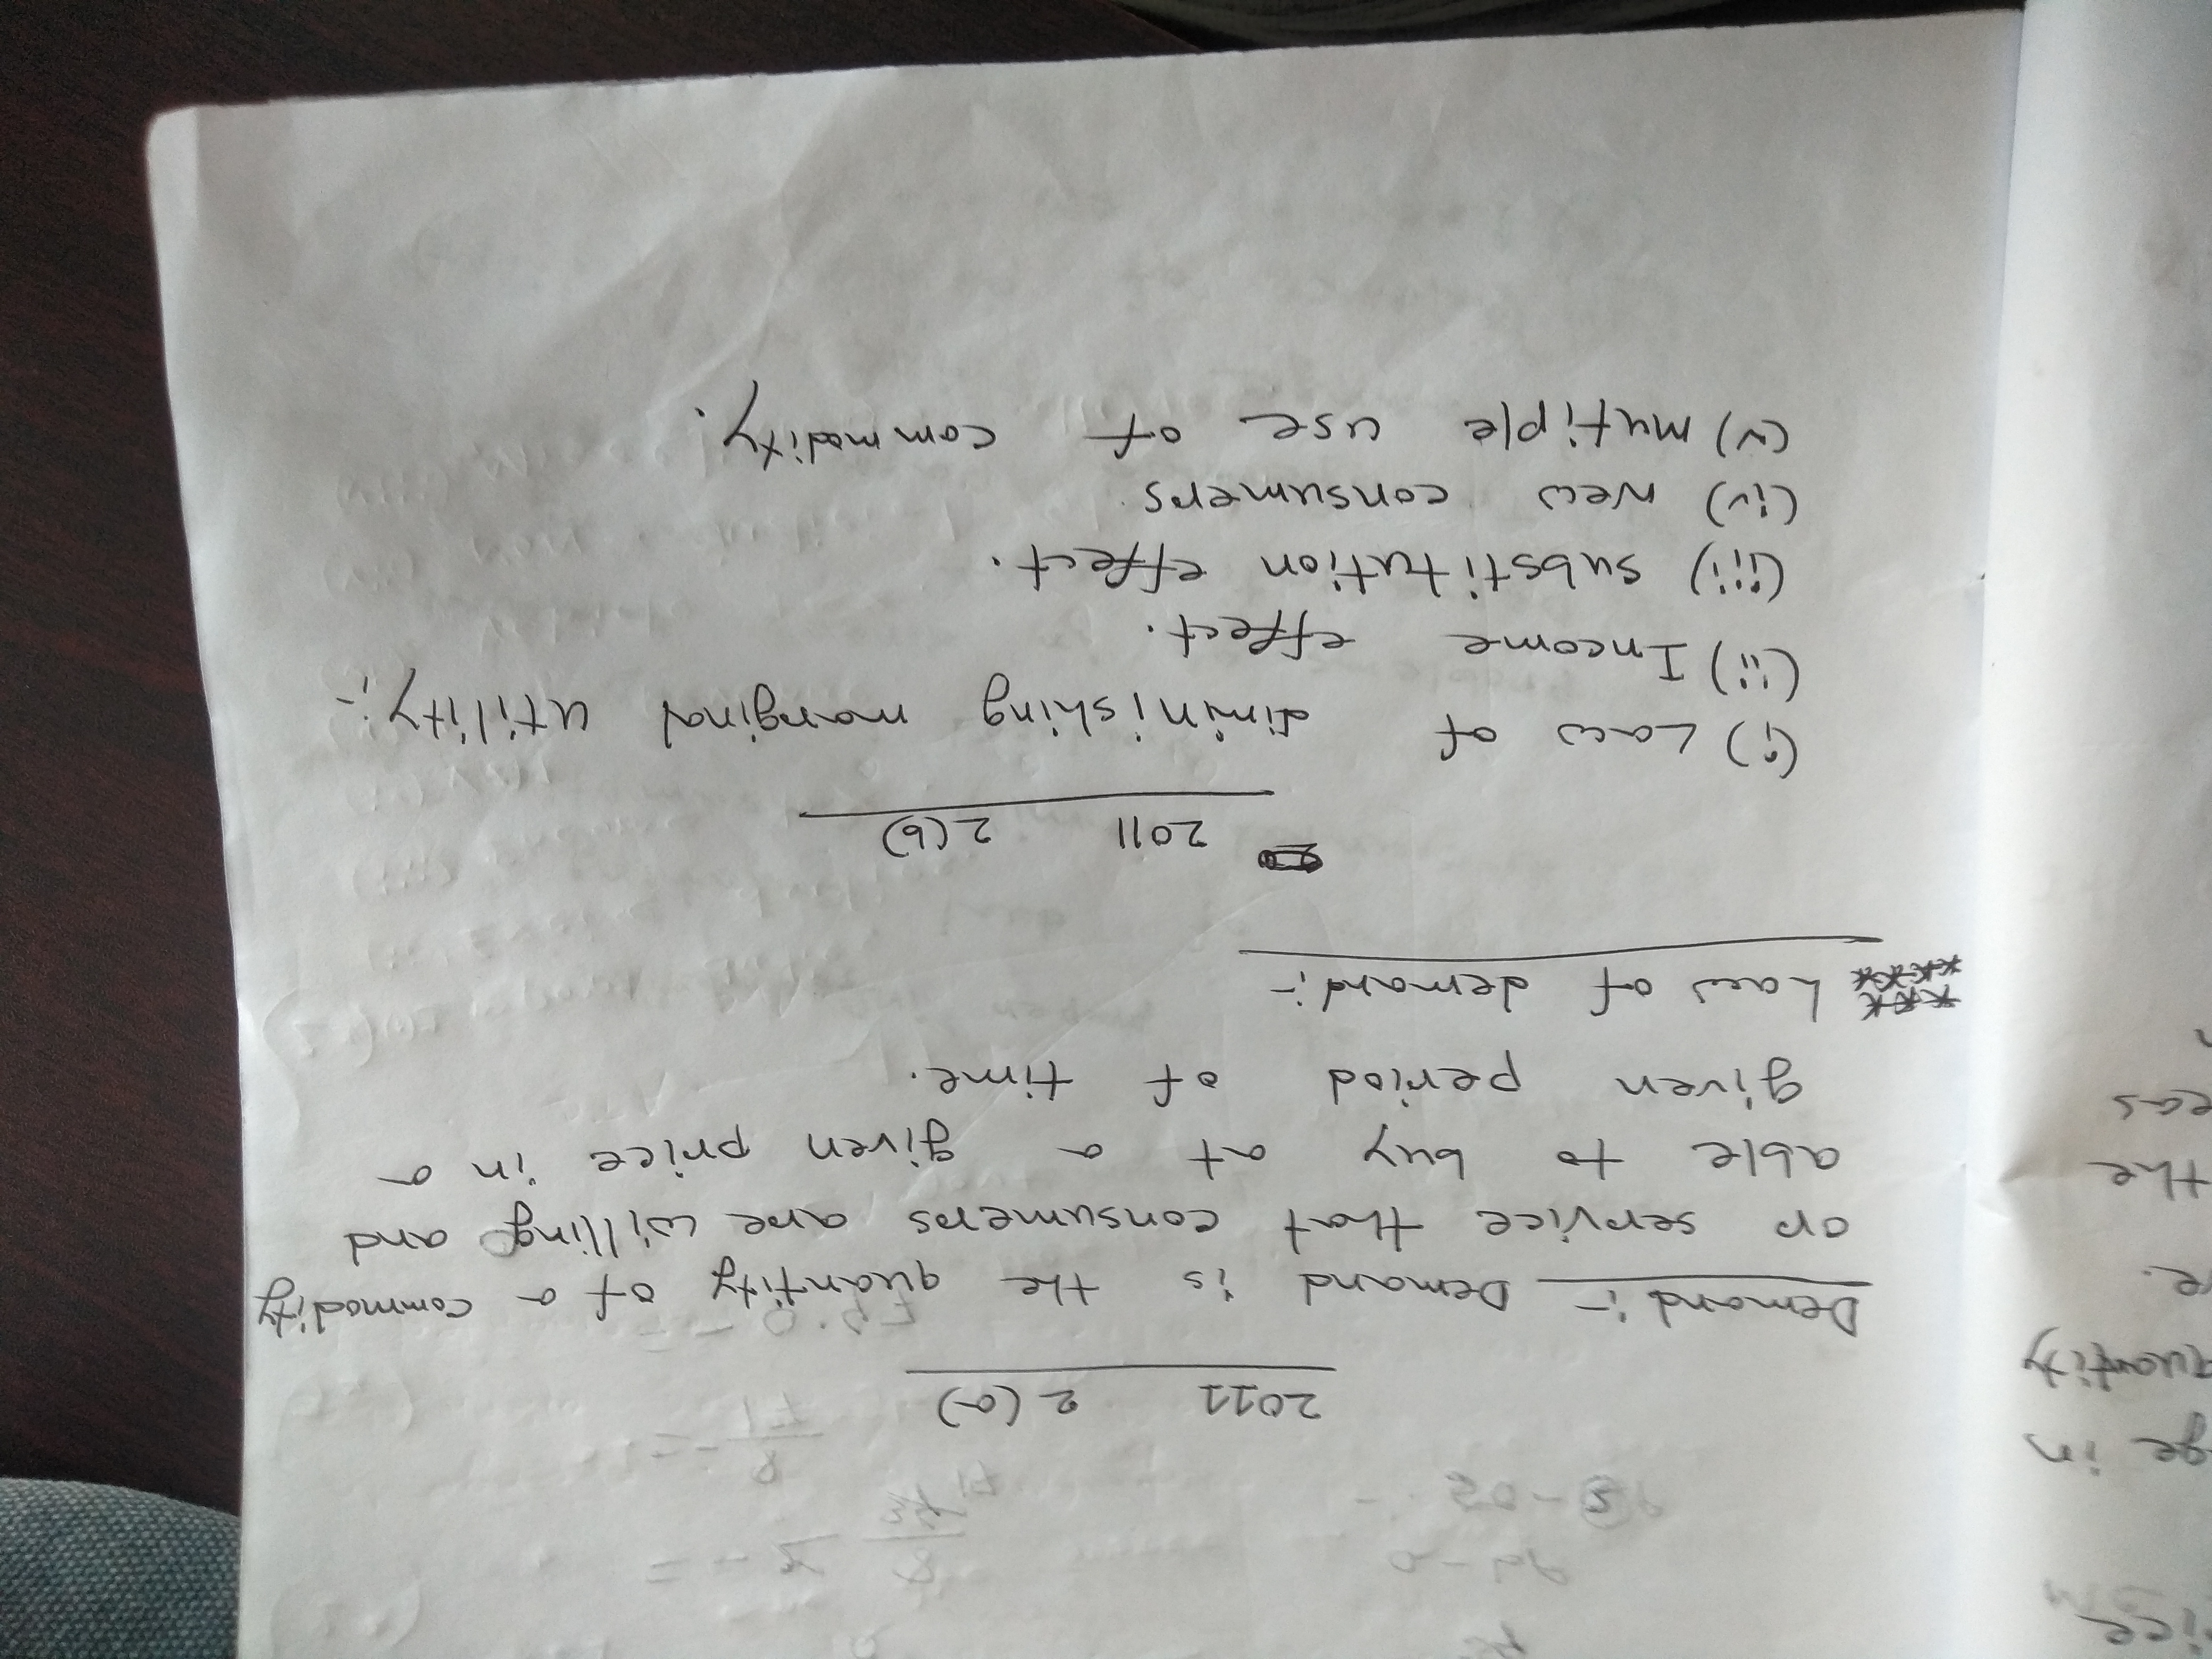 ice
ge in
quantity
re.
the
eas
2011 2(a)
Demand :- Demand is the quantity of a commodity
or service that consumers are willing and
able to buy at a given price in a
given period of time.
*** **** Law of demand :-
2011 2(b)
(i) Law of diminishing marginal utility :-
(ii) Income effect.
(iii) substitution effect.
(iv) New consumers.
(v) mutiple use of commodity.